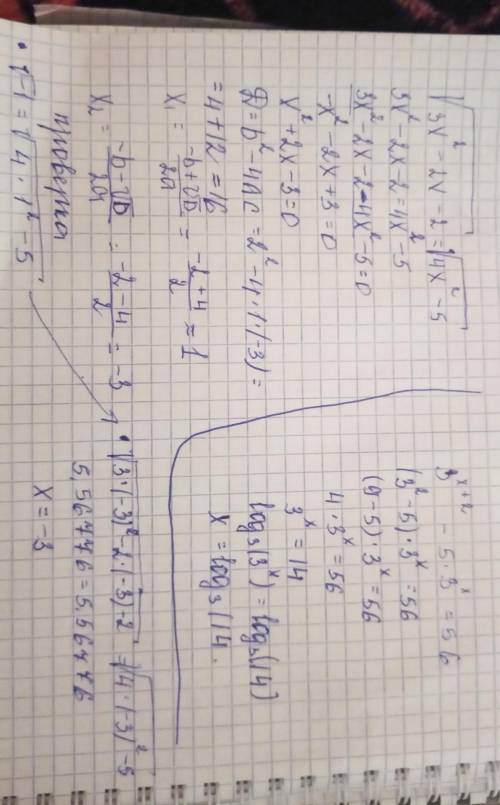 √3x² - 2x - 2 = √4x² - 5
3x² - 2x - 2 = 4x² - 5
3x² - 2x - 2 - 4x² - 5 = 0
-x² - 2x + 3 = 0
x² + 2x - 3 = 0
D = b² - 4ac = 2² - 4 · 1 · (-3) =
= 4 + 12 = 16
x₁ = -b + √D / 2a = -2 + 4 / 2 = 1
x₂ = -b - √D / 2a = -2 - 4 / 2 = -3
проверка
• √-1 = √4 · 1² - 5
• √3 · (-3)² - 2 · (-3) - 2 = √4 · (-3)² - 5
5,56776 = 5.56776
x = -3
3ˣ⁺² - 5 · 3ˣ = 56
(3² - 5) · 3ˣ = 56
(9 - 5) · 3ˣ = 56
4 · 3ˣ = 56
3ˣ = 14
log₃(3ˣ) = log₃(14)
x = log₃(14.